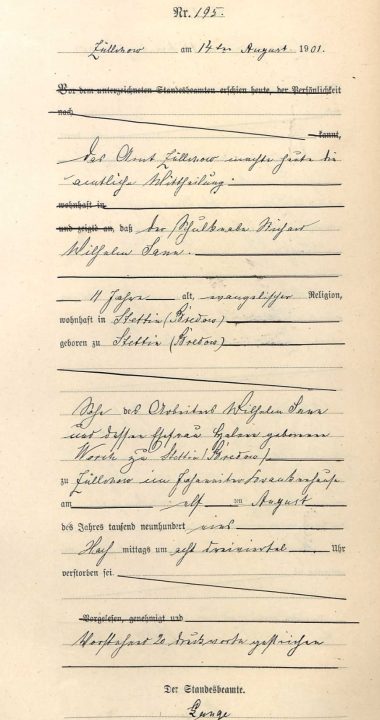 Nr. 195.
Züllchow am 14ten August 1901.
Vor dem unterzeichneten Standesbeamten erschien heute, der Persönlichkeit
nach
kannt,
das Amt Züllchow machte heute die
amtliche Mittheilung
wohnhaft in
und zeigte an, daß der Schulknabe Richard
Wilhelm
11 Jahre alt, evangelischer Religion,
wohnhaft in Stettin (Bredow)
geboren zu Stettin (Bredow)
Sohn des Arbeiters Wilhelm
und dessen Ehefrau geborenen
zu Stettin (Bredow)
zu Züllchow im Johanniter Krankenhause
am elf ten August
des Jahres tausend neunhundert eins
Nach mittags um acht dreiviertel Uhr
verstorben sei.
Vorgelesen, genehmigt und
Vorstehend 20 Druckworte gestrichen
Der Standesbeamte.
Lange